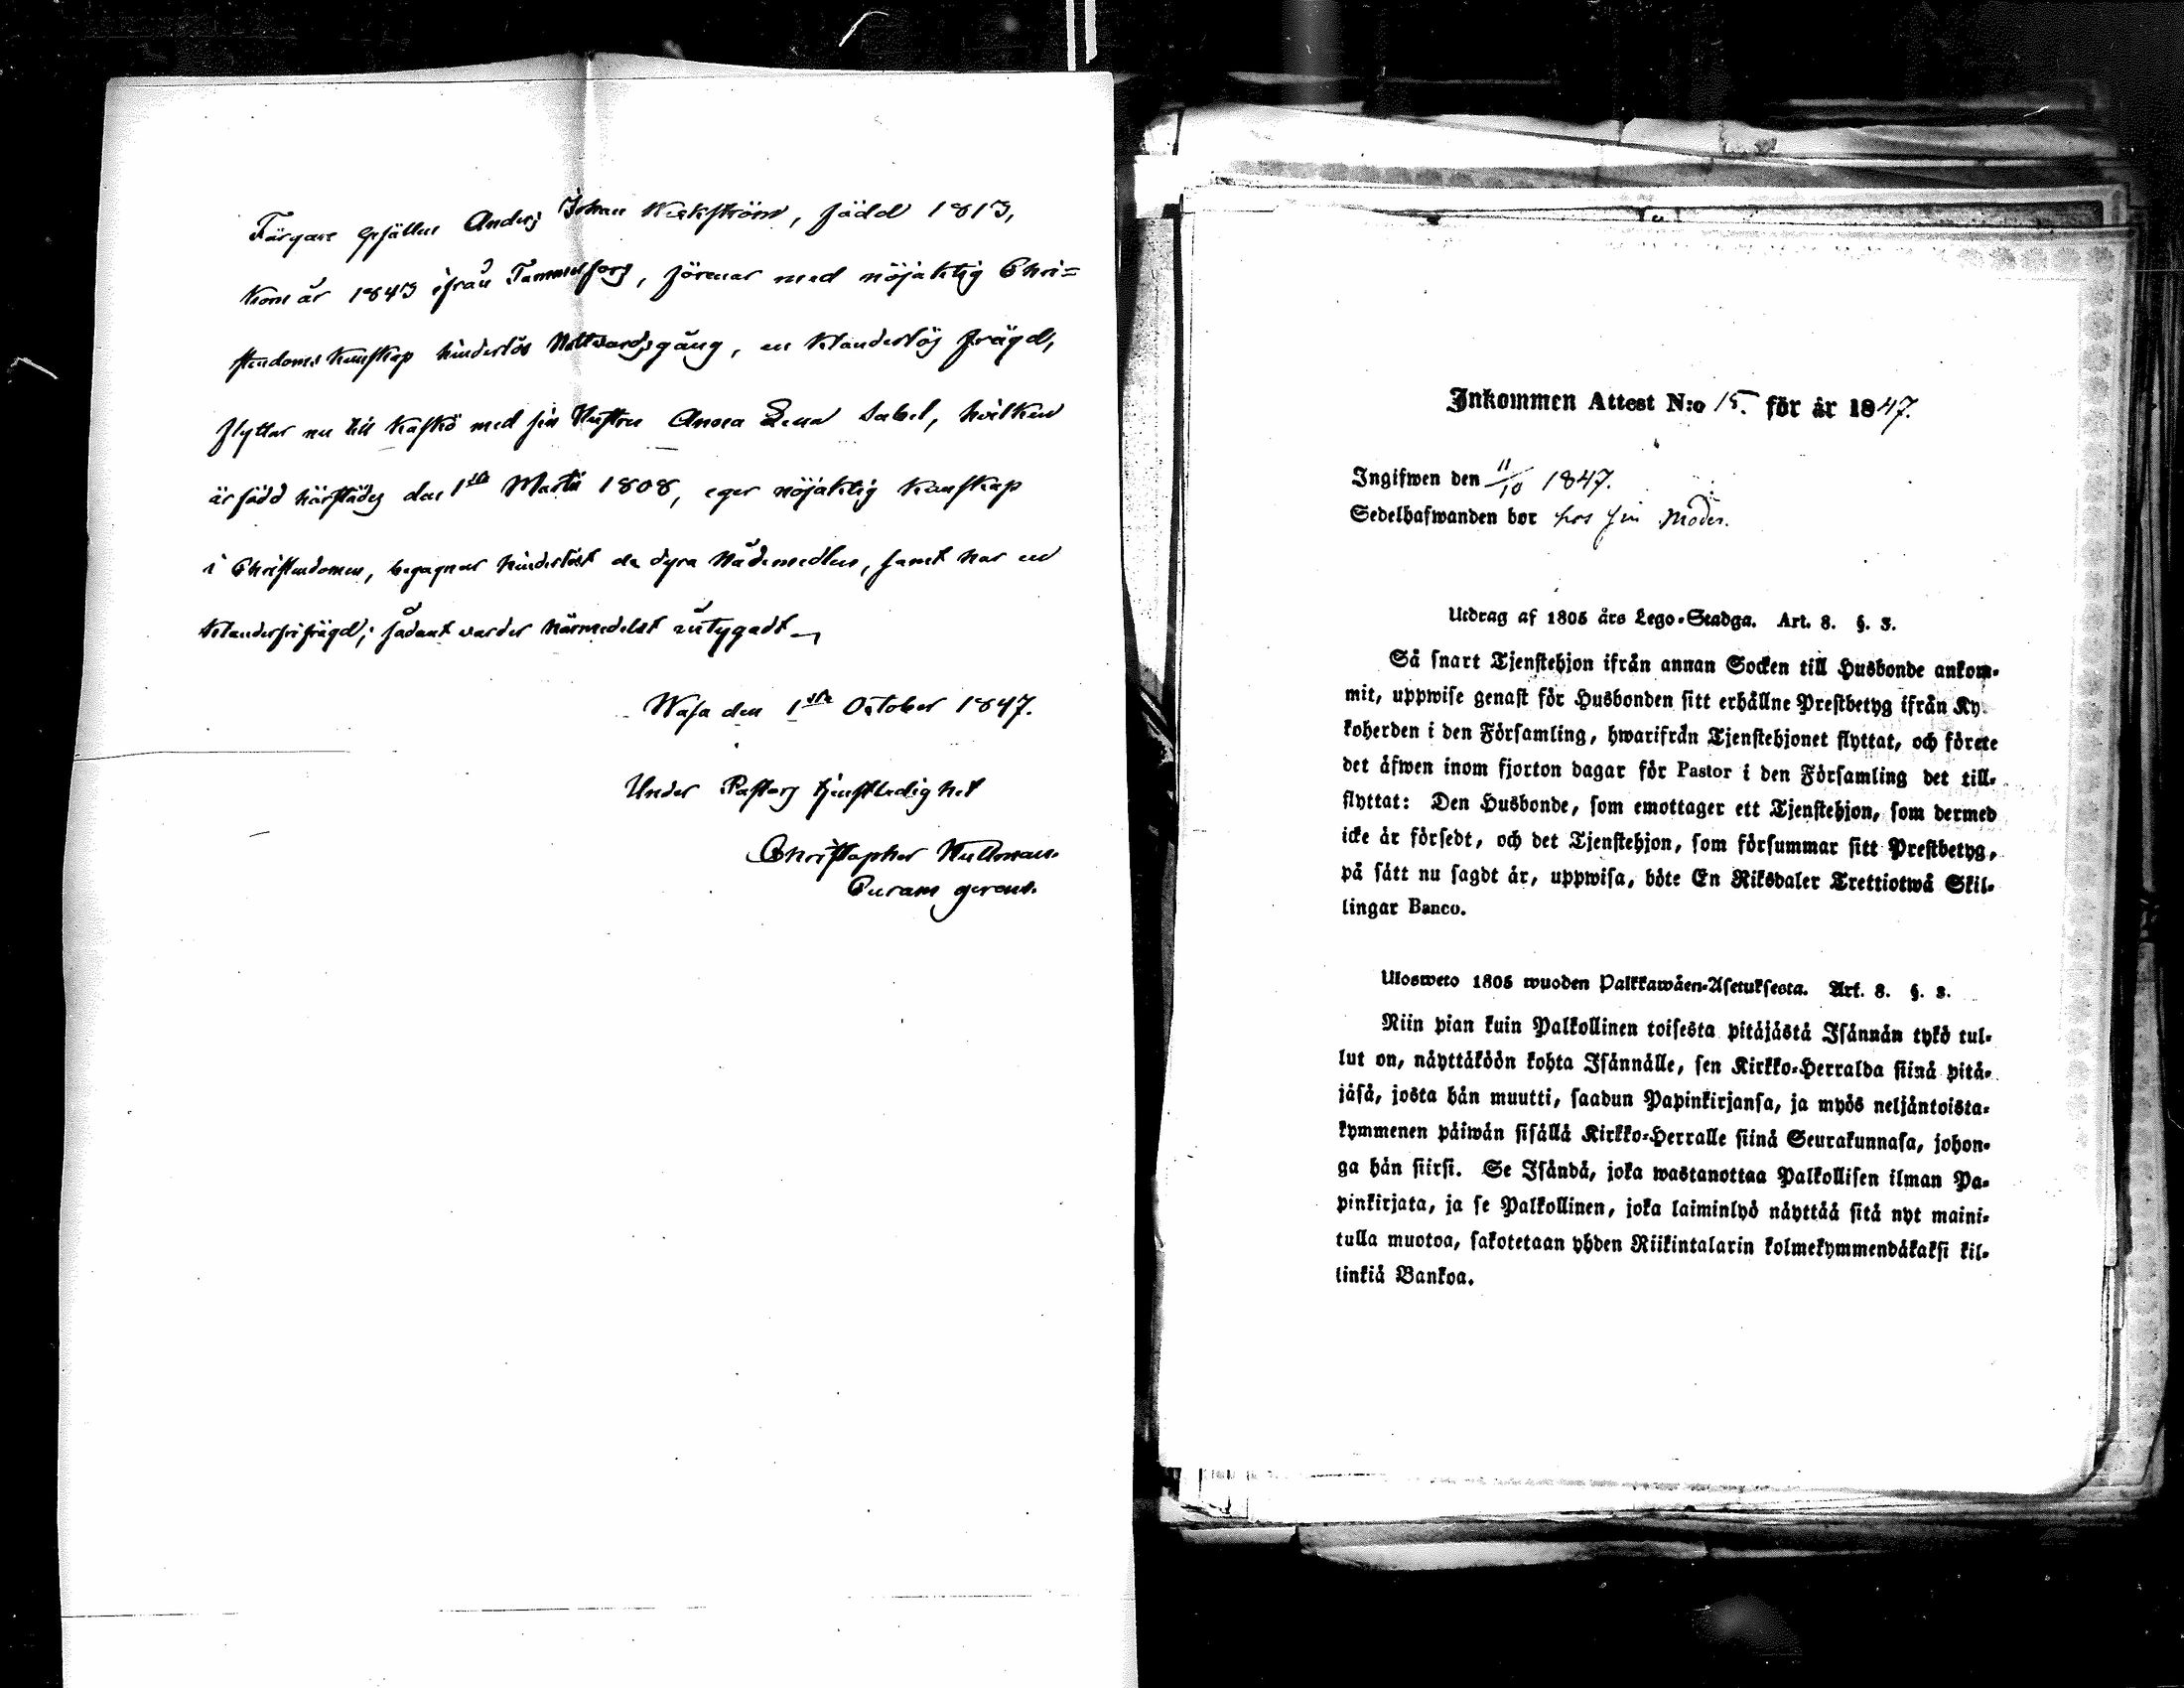 Färgare Gesällen Anders Johan Wickström, född 1813,
kom år 1843 ifrån Tammerfors, förenar med nöjaktig Chri=
stendoms kunskap hinderlös Nattvardsgång, en klanderlös frägd,
flyttar nu till Kaskö med sin Hustru Anna Lena Sabel, hvilken
är född härstädes den 1sta Martii 1808, eger nöjaktig kunskap
i Christendomen, begagnar hinderlöst de dyra Nådemedlen, samt har en
klanderfri frägd; sådant varder härmedelst
Wasa den 1sta October 1847.
Under Pastors tjenstledighet
Christopher
Curam gerens.
Inkommen Attest N:o 15. för år 1847.
Ingifwen den 11/10 1847.
Sedelhafwanden bor hos sin Moder.
Utdrag af 1805 års Lego-Stadga. Art. 8. §. 3.
Så snart Tjenstehjon ifrån annan Socken till Husbonde ankom-
mit, uppwise genast för Husbonden sitt erhållne Prestbetyg ifrån Ky-
koherden i den Församling, hwarifrån Tjenstehjonet flyttat, och förete
det äfwen inom fjorton dagar för Pastor i den Församling det till-
flyttat: Den Husbonde, som emottager ett Tjenstehjon, som dermed
icke är försedt, och det Tjenstehjon, som försummar sitt Prestbetyg,
på sätt nu sagdt är, uppwisa, böte En Riksdaler Trettiotwå Skil-
lingar Banco.
Ulosweto 1805 wuoden Palkkawäen-Asetuksesta. Art. 8. §. 3.
Niin pian kuin Palkollinen toisesta pitäjästä Isännän tykö tul-
lut on, näyttäköön kohta Isännälle, sen Kirkko-Herralda siinä pitä-
jäsä, josta hän muutti, saadun Papinkirjansa, ja myös neljäntoista-
kymmenen päiwän sisällä Kirkko-Herralle siinä Seurakunnasa, johon-
ga hän siirsi. Se Isändä, joka wastanottaa Palkollisen ilman Pa-
pinkirjata, ja se Palkollinen, joka laiminlyö näyttää sitä nyt maini-
tulla muotoa, sakotetaan yhden Riikintalarin kolmekymmendäkaksi kil-
linkiä Bankoa.